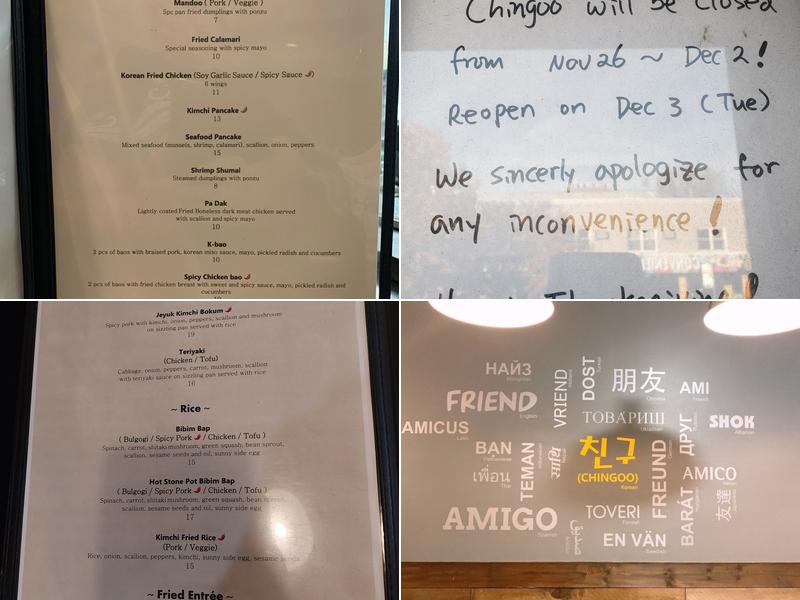 Mandoo ( Pork / Veggie )
5pc pan fried dumplings with ponzu
7
Fried Calamari
Special seasoning with spicy mayo
10
Korean Fried Chicken (Soy Garlic Sauce / Spicy Sauce 🌶)
6 wings
11
Kimchi Pancake 🌶
13
Seafood Pancake
Mixed seafood (mussels, shrimp, calamari), scallion, onion, peppers
15
Shrimp Shumai
Steamed dumplings with ponzu
8
Pa Dak
Lightly coated Fried Boneless dark meat chicken served
with scallion and spicy mayo
10
K-bao
2 pcs of baos with braised pork, korean miso sauce, mayo, pickled radish and cucumbers
10
Spicy Chicken bao 🌶
2 pcs of baos with fried chicken breast with sweet and spicy sauce, mayo, pickled radish and
cucumbers
10
Chingoo will be closed
from Nov 26 ~ Dec 2!
Reopen on Dec 3 (Tue)
We sincerly apologize for
any inconvenience !
Jeyuk Kimchi Bokum 🌶
Spicy pork with kimchi, onion, peppers, scallion and mushroom
on sizzling pan served with rice
19
Teriyaki
(Chicken / Tofu)
Cabbage, onion, peppers, carrot, mushroom, scallion
with teriyaki sauce on sizzling pan served with rice
16
~ Rice ~
Bibim Bap
( Bulgogi / Spicy Pork 🌶 / Chicken / Tofu )
Spinach, carrot, shiitaki mushroom, green squash, bean sprout,
scallion, sesame seeds and oil, sunny side egg
15
Hot Stone Pot Bibim Bap
( Bulgogi / Spicy Pork 🌶 / Chicken / Tofu )
Spinach, carrot, shiitaki mushroom, green squash, bean sprout,
scallion, sesame seeds and oil, sunny side egg
17
Kimchi Fried Rice 🌶
(Pork / Veggie)
Rice, onion, scallion, peppers, kimchi, sunny side egg, sesame seeds
15
~ Fried Entrée ~
НАЙЗ
Mongolian
FRIEND
English
VRIEND
DOST
朋友
Chinese
AMI
French
AMICUS
Latin
ТОВАРИШ
Ukrainian
SHOK
Albanian
BẠN
เพื่อน
Thai
TEMAN
साथि
친구
(CHINGOO)
Korean
FREUND
ДРУГ
AMICO
BARÁT
友達
AMIGO
Spanish
صديق
TOVERI
Finnish
EN VÄN
Swedish